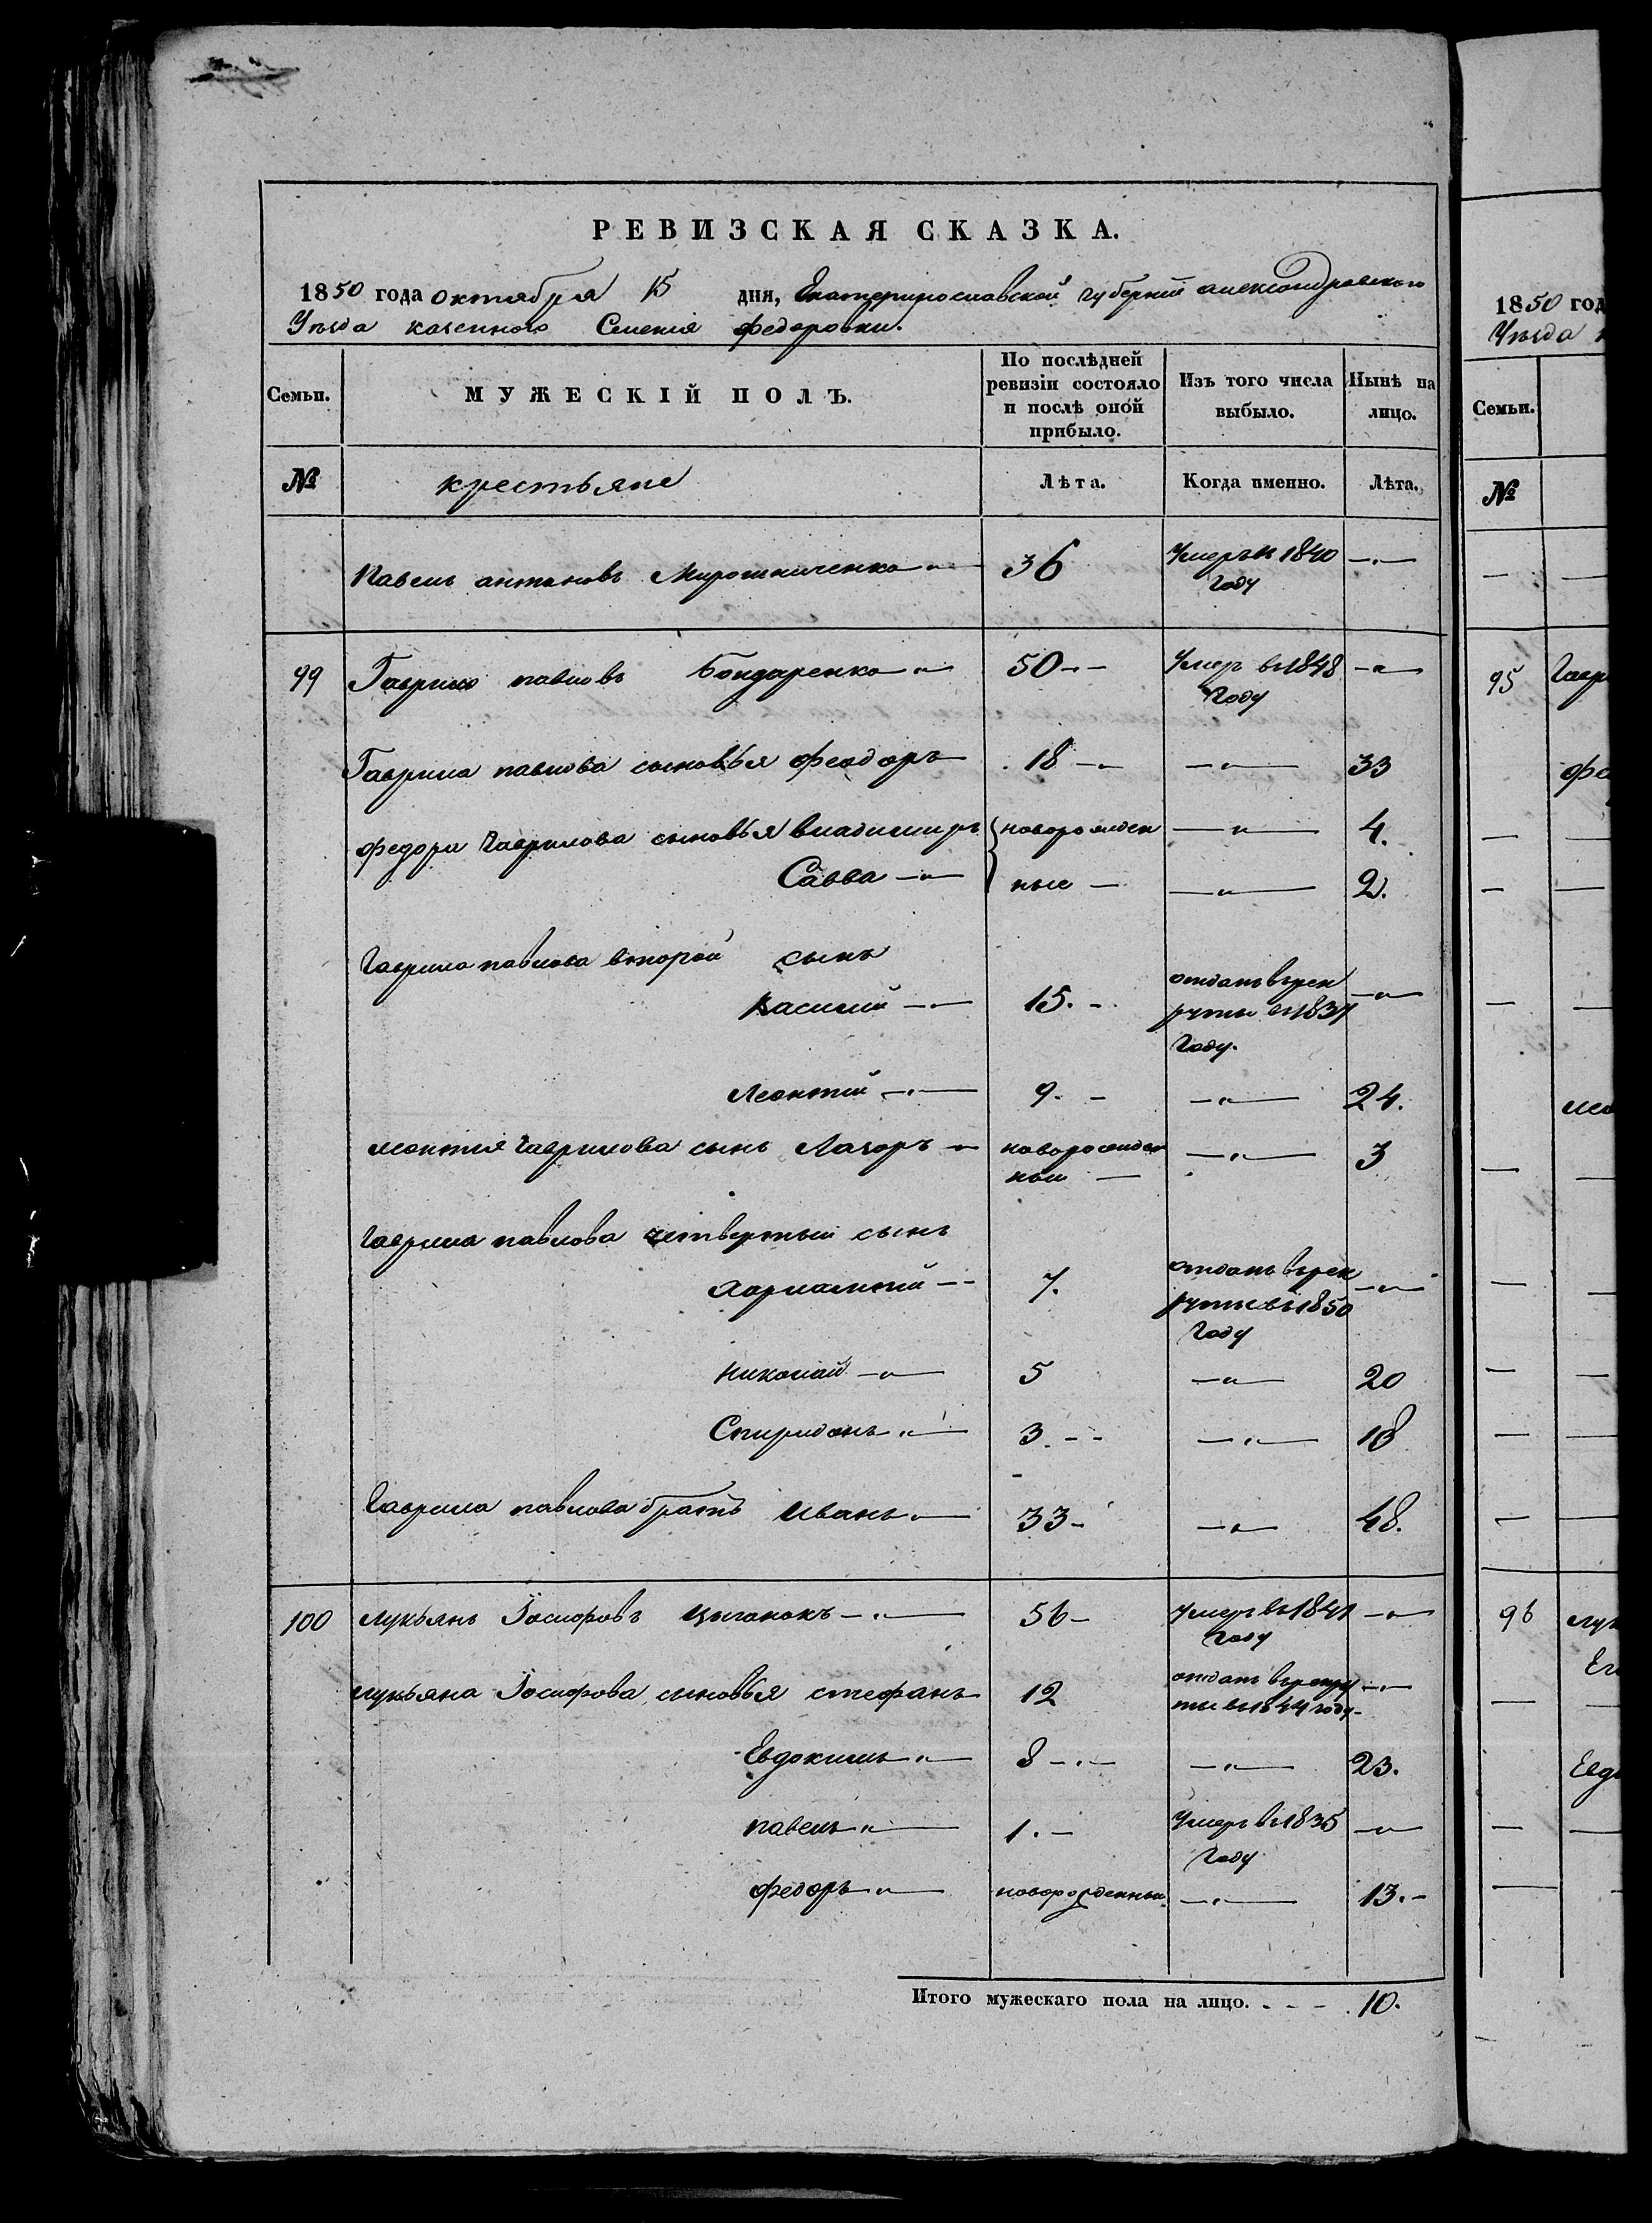 РЕВИЗСКАЯ СКАЗКА.
1850 года октября 15 дня, Екатеринославской губерніи александровскаго
Уѣзда казеннаго Селенія федоровки.
Семьи.
МУЖЕСКІЙ ПОЛЪ.
По послѣдней
ревизіи состояло
и послѣ оной
прибыло.
Изъ того числа
выбыло.
Нынѣ на
лицо.
№
крестьяне
Лѣта.
Когда именно.
Лѣта.
Павелъ антоновъ Мирошниченко 36 Умеръ в 1840
году
99 Гаврило павловъ Бондаренко 50 Умеръ въ 1848
году
Гаврила павлова сыновья Феодоръ 18 33
Федора Гаврилова сыновья владимиръ новорожден 4.
Савва ные 2.
Гаврила павлова второй сынъ
Василий 15. отданъ въ рек
руты въ 1837
году.
Леонтий 9. 24.
леонтия Гаврилова сынъ Лазоръ новорожден 3
ный
Гаврила павлова четвертый сынъ
Харлампий 7. отданъ въ рек
руты въ 1850
году
Николай 5 20
Спиридонъ 3. 18
Гаврила павлова братъ Иванъ 33 48.
100 лукьянъ Іосифовъ Цыганокъ 56 умеръ въ 1841
году
лукьяна Іосифова сыновья стефанъ 12 отданъ въ рекру
ты въ 1844 году
Евдокимъ 8 23.
павелъ 1. Умеръ въ 1835
году
федоръ новорожденный 13.
Итого мужескаго пола на лицо. 10.
1850 год
Уѣзда
Семьи.
№
95 Гавр
фе
лео
96 лук
Евд